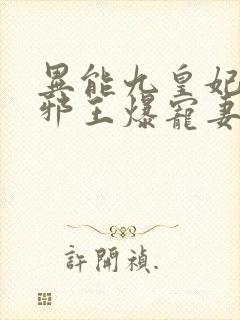 異能九皇妃
邪王爆寵妻
許開禎.